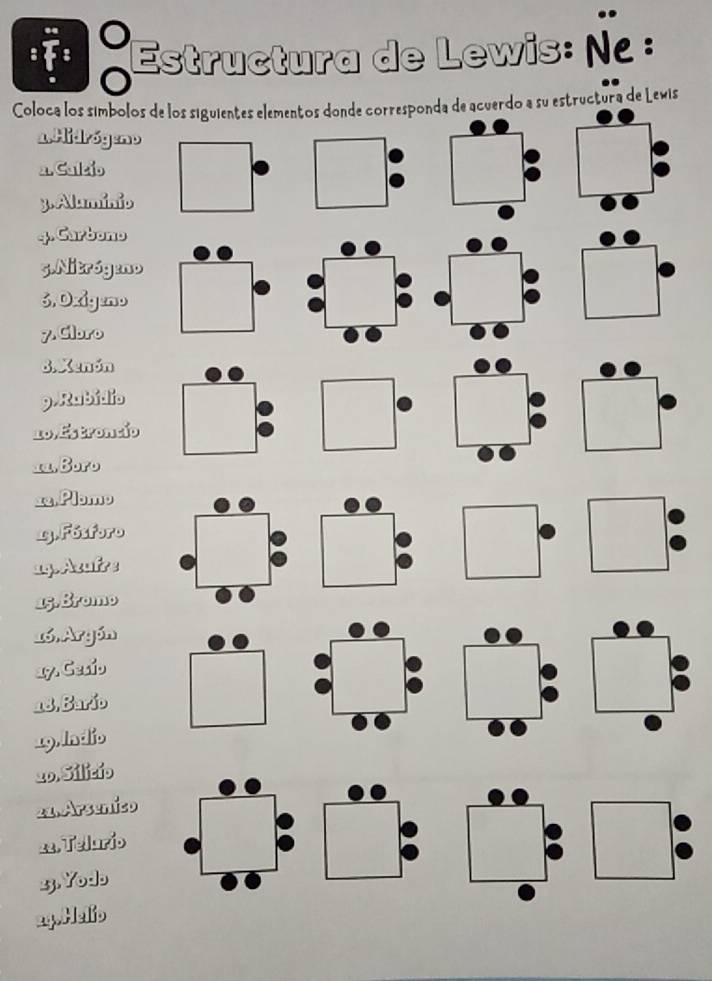 F Estructura de Lewis: Ne
Coloca los símbolos de los siguientes elementos donde corresponda de acuerdo a su estructura de Lewis
1. Hidrógeno
2. Calcio
3. Aluminio
4. Carbono
5. Nitrógeno
6. Oxígeno
7. Cloro
8. Xenón
9. Rubidio
10. Estroncio
11. Boro
12. Plomo
13. Fósforo
14. Azufre
15. Bromo
16. Argón
17. Cesio
18. Bario
19. Indio
20. Silicio
21. Arsenico
22. Telurio
23. Yodo
24. Helio